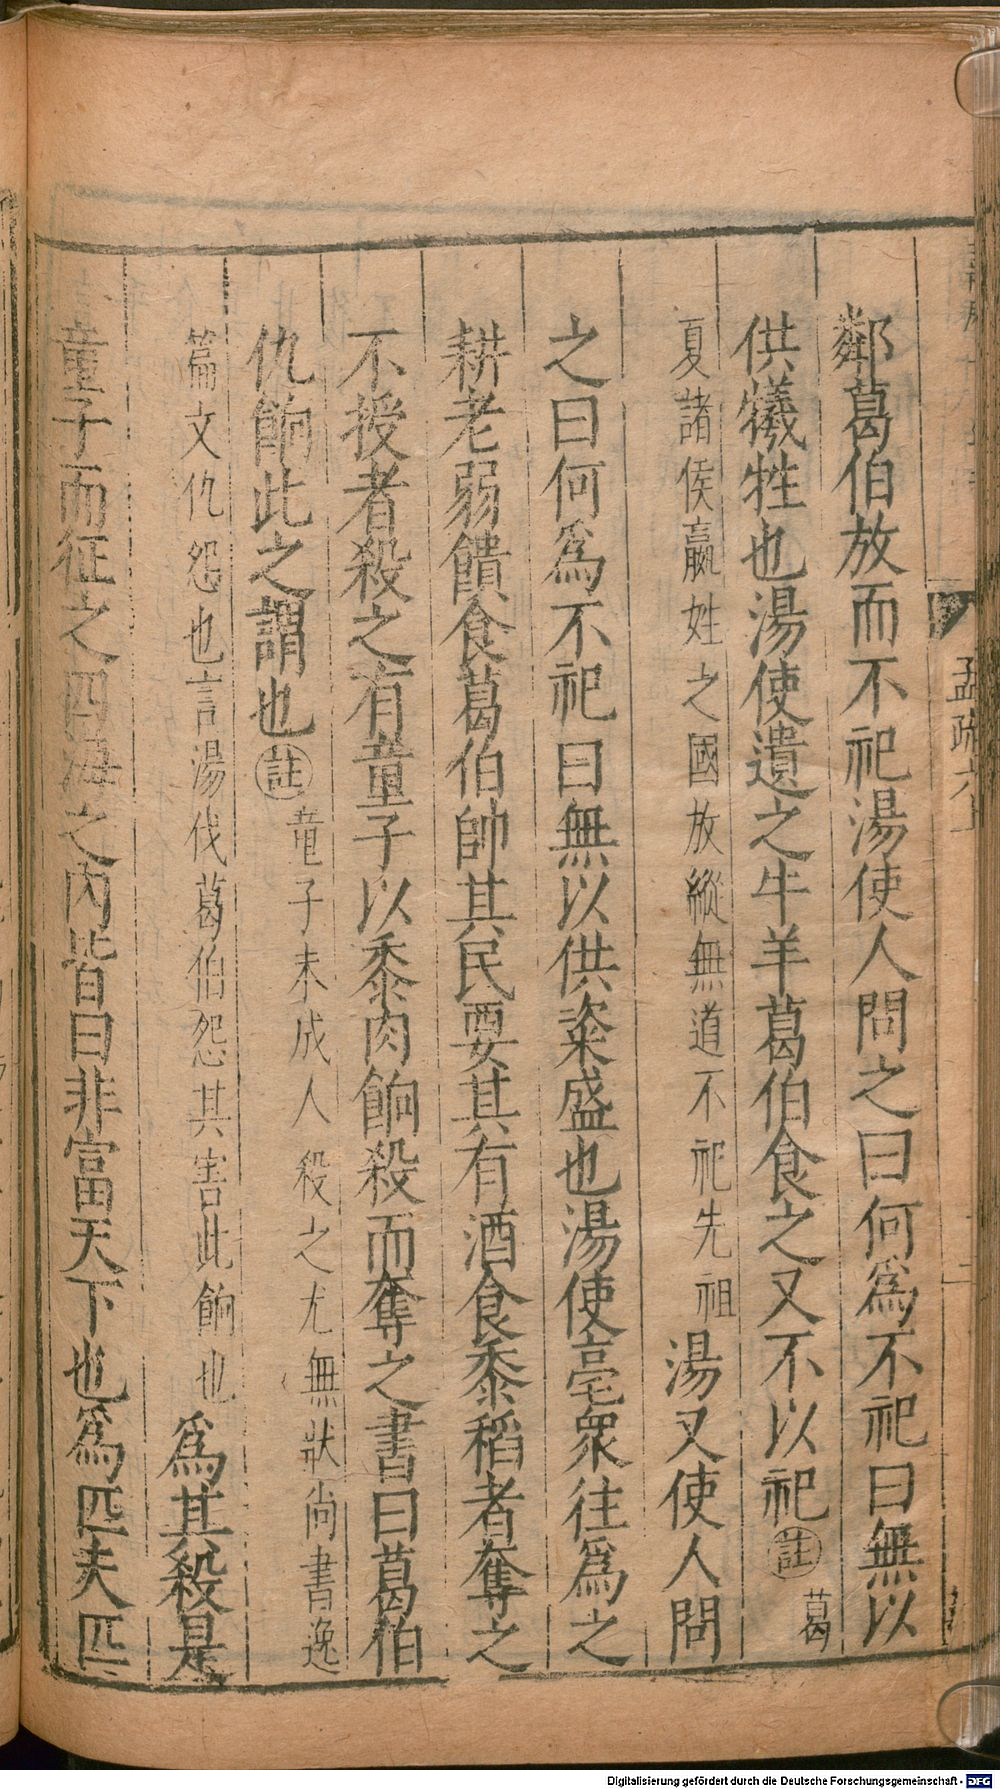 鄰葛伯放而不祀湯使人問之曰何爲不祀曰無以
供犧牲也湯使遺之牛羊葛伯食之又不以祀註葛
夏諸侯嬴姓之國放縱無道不祀先祖湯又使人問
之曰何爲不祀曰無以供粢盛也湯使亳衆往爲之
耕老弱饋食葛伯帥其民要其有酒食黍稻者奪之
不授者殺之有童子以黍肉餉殺而奪之書曰葛伯
仇餉此之謂也註童子未成人殺之尤無狀尚書逸
篇文仇怨也言湯伐葛伯怨其害此餉也爲其殺是
童子而征之四海之內皆曰非富天下也爲匹夫匹
孟疏六上
Digitalisierung gefördert durch die Deutsche Forschungsgemeinschaft - DFG